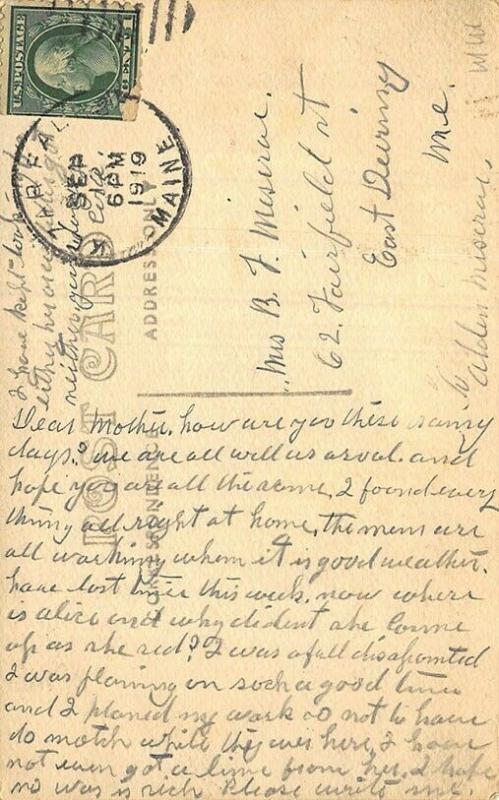 U.S. POSTAGE
1 CENT 1
SEP
6 PM
1919
MAINE
POST CARD
ADDRESS ONLY
CORRESPONDENCE
Mrs B. F. Meserve.
62. Fairfield st
East Deering
Me.
Alden Meserve.
I have kept looking
neither
Dear Mother. how are you these rainy
days? we are all well as usal. and
hope you are all the same. I found every
thing all right at home. the mens are
all working when it is good weather.
have lost time this week. now where
is alice and why dident she come
up as she sed? I was afull disapointed
I was planing on such a good time
and I planed my work so not to have
do motch while they was here. I have
not even got a line from her. I hope
no was is sick. Please write me.